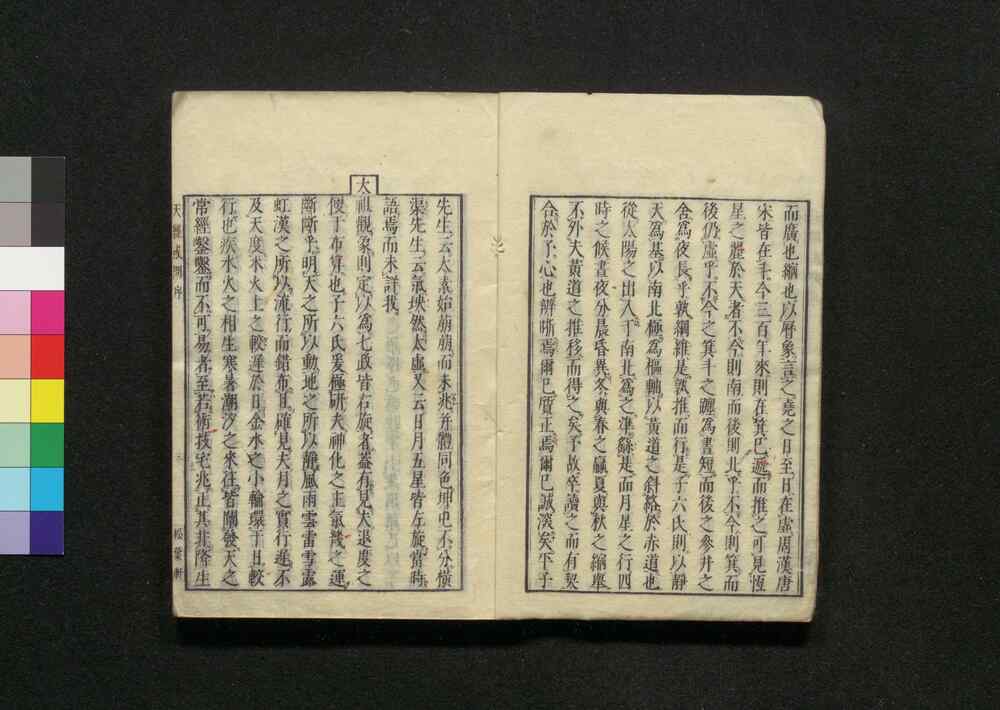 而廣也縮也以曆象言之堯之日至日在虛周漢唐
宋皆在斗今三百年來則在箕巳遞而推之可見恆
星之麗於天者不今則南而後則北乎不今則箕而
後仍虛乎不今之箕斗之躔爲晝短而後之參井之
舍爲夜長乎孰綱維是孰推而行是子六氏則以靜
天爲基以南北極爲樞軸以黃道之斜絡於赤道也
從太陽之出入于南北爲之準繇是而月星之行四
時之候晝夜分晨昏異冬與春之贏夏與秋之縮舉
不外夫黃道之推移而得之矣予故卒讀之而有契
合於予心也辨晣焉爾巳質正焉爾巳誠淡矣乎子
先生云太素始萌萌而未兆并體同色坤屯不分橫
渠先生云氣坱然太虛又云日月五星皆左旋當時
語焉而未詳我
太祖觀象則定以爲七政皆右旋者蓋有見夫退度之
便于布筭也子六氏爰極研夫神化之正氣幾之運
斷斷乎明天之所以動地之所以靜風雨雲雷雪露
虹漢之所以流行而錯布且確見夫月之實行遲不
及天度木火土之較遲於日金水之小輪環于日較
行也疾水火之相生寒暑潮汐之來往皆關發天之
常經鑿鑿而不可易者至若術技宅兆正其非降生
天經或問序
松葉軒